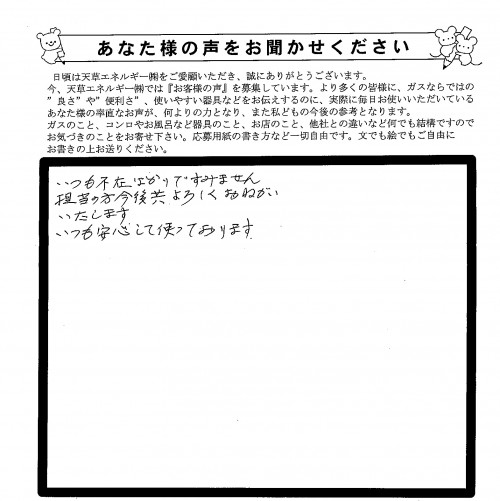 あなた様の声をお聞かせください
日頃は天草エネルギー㈱をご愛顧いただき、誠にありがとうございます。
今、天草エネルギー㈱では『お客様の声』を募集しています。より多くの皆様に、ガスならではの
"良さ"や"便利さ"、使いやすい器具などをお伝えするのに、実際に毎日お使いいただいている
あなた様の率直なお声が、何よりの力となり、また私どもの今後の参考となります。
ガスのこと、コンロやお風呂など器具のこと、お店のこと、他社との違いなど何でも結構ですので
お気づきのことをお寄せ下さい。応募用紙の書き方など一切自由です。文でも絵でもご自由に
お書きの上お送りください。
いつも不在ばかりですみません
担当の方今後共よろしくおねがい
いたします
いつも安心して使っております